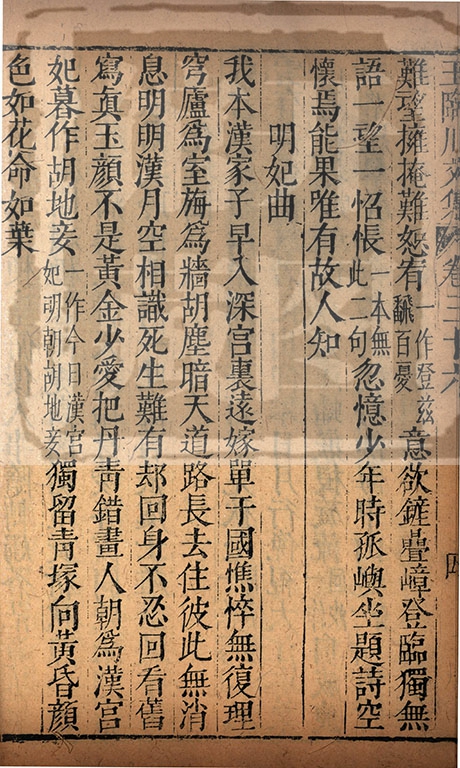 王臨川文集 卷三十六 四
難望擁掩難恕有一作登茲翻百憂意欲鏟疊嶂登臨獨無
語一望一怊悵一本無此二句忽憶少年時孤嶼坐題詩空
懷焉能果唯有故人知
明妃曲
我本漢家子早入深宮裏遠嫁單于國憔悴無復理
穹廬為室旃為牆胡塵暗天道路長去住彼此無消
息明明漢月空相識死生難有却回身不忍回看舊
寫眞玉顏不是黃金少愛把丹青錯畫人朝為漢宮
妃暮作胡地妾一作今日漢宮妃明朝胡地妾獨留青塚向黃昏顏
色如花命如葉